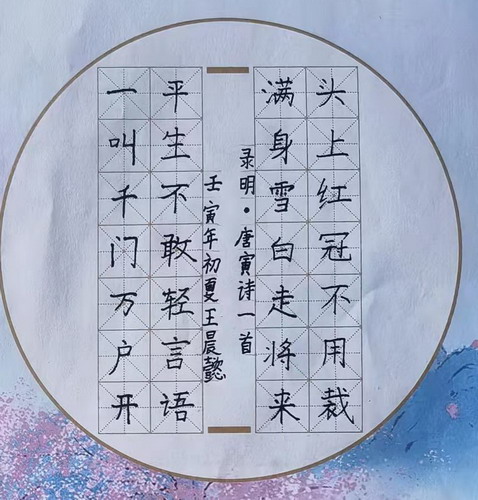 头上红冠不用裁
满身雪白走将来
平生不敢轻言语
一叫千门万户开
录明·唐寅诗一首
壬寅年初夏王晨懿